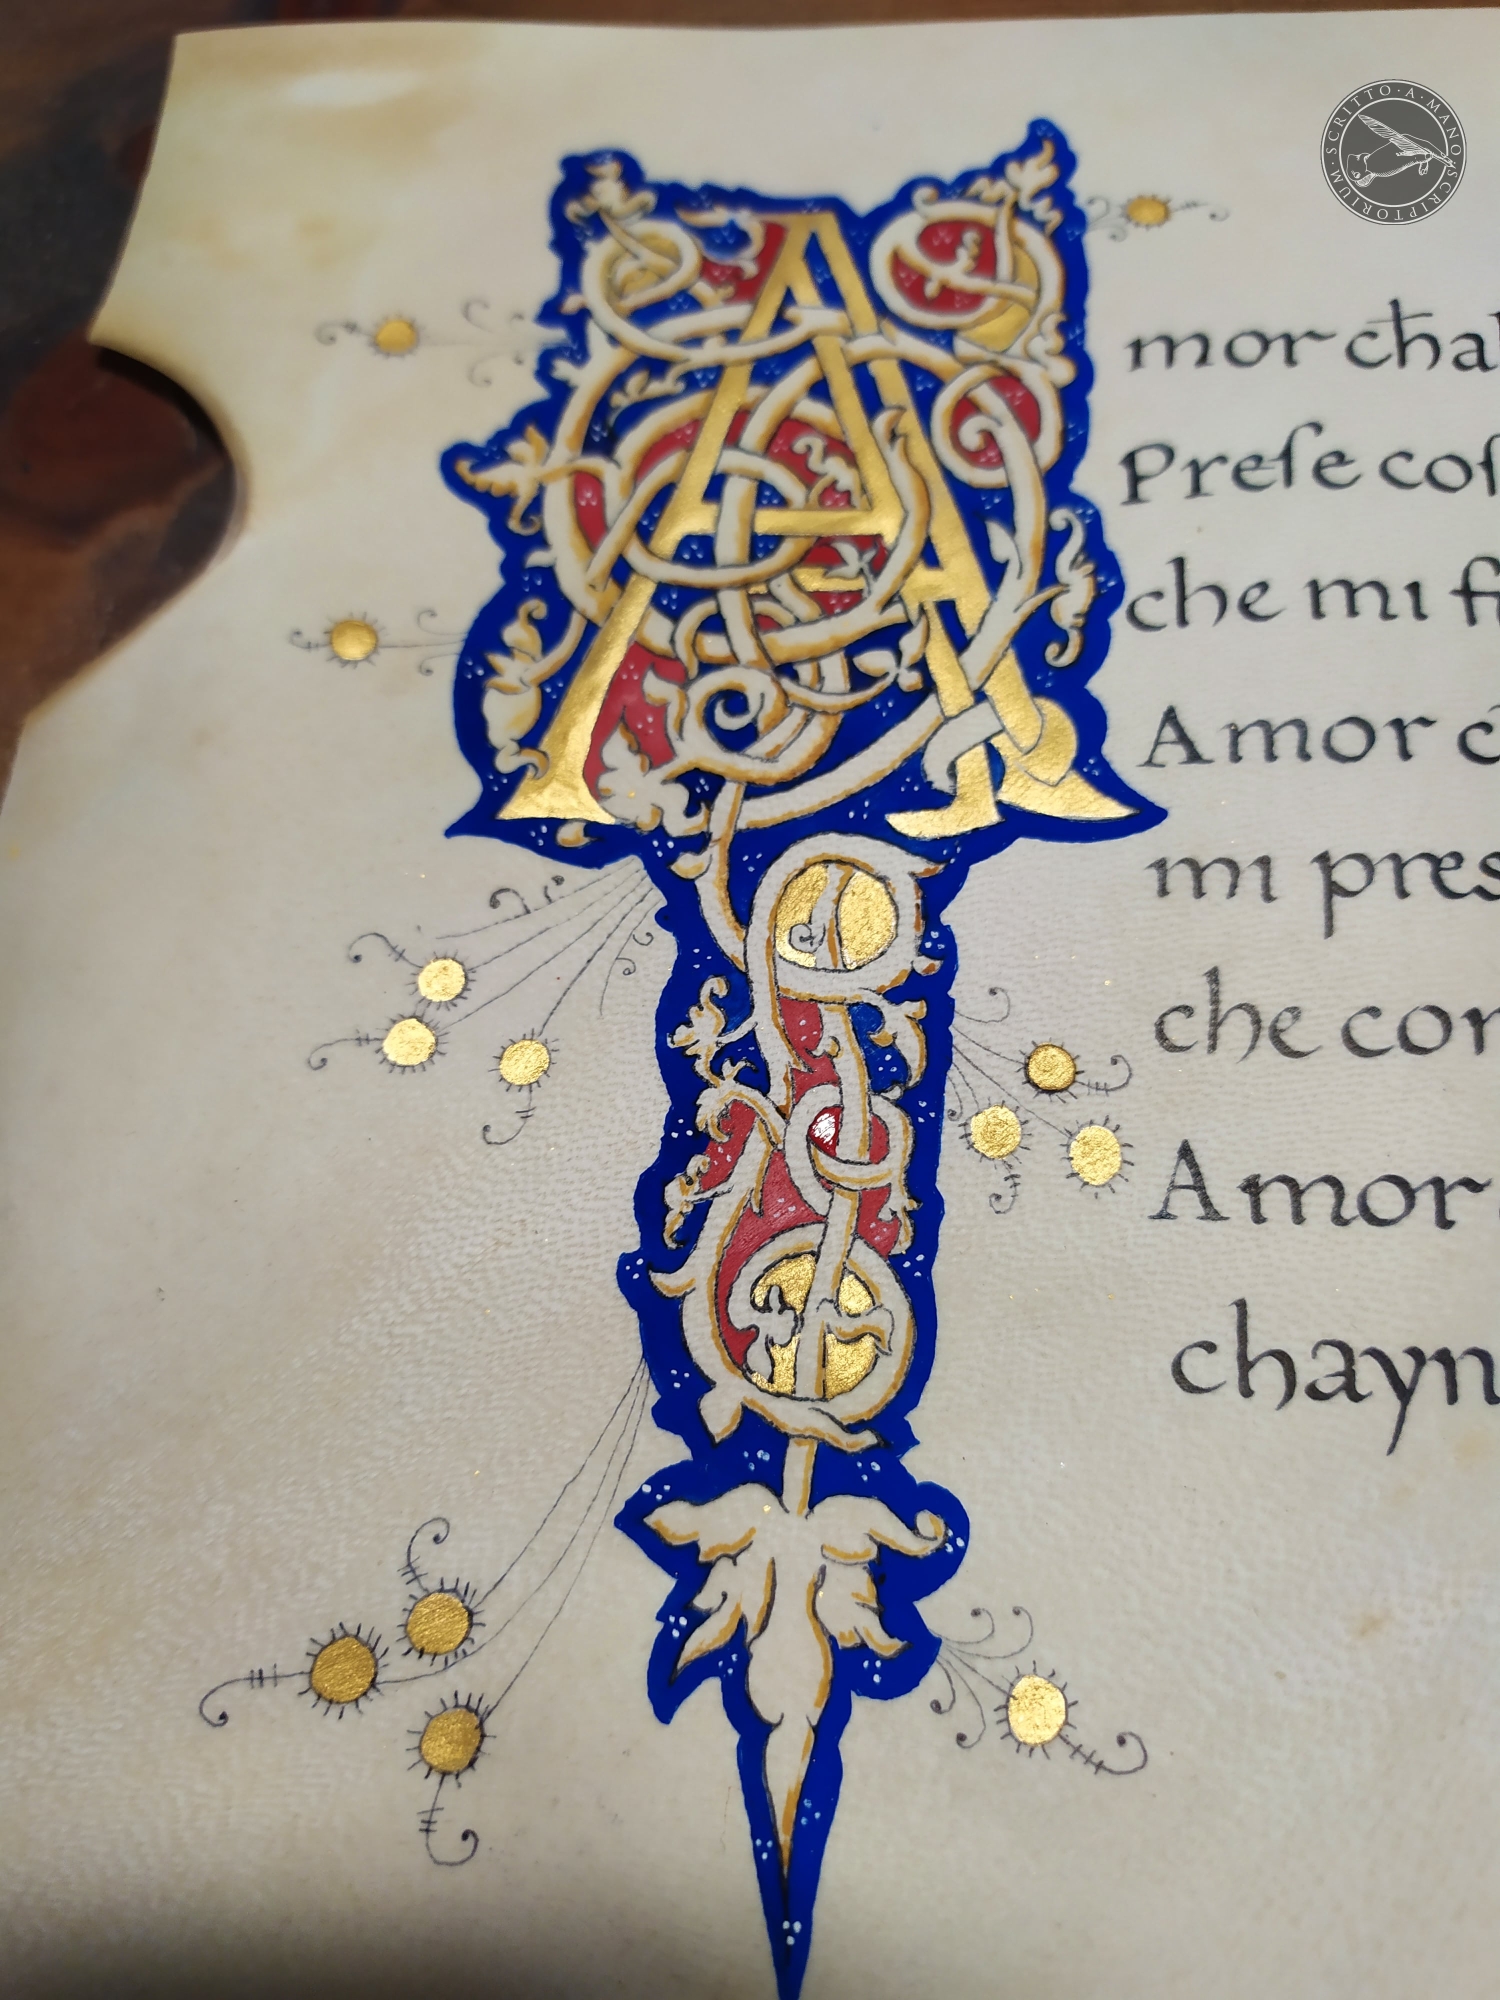 SCRITTO · A · MANO · SCRIPTORIUM ·
A
mor chal
Preſe coſ
che mi fi
Amor c
mi pres
che con
Amor
chayn